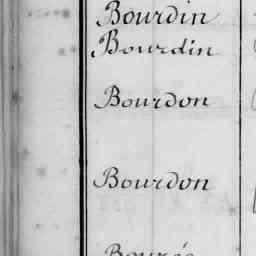 Bourdin
Bourdin
Bourdon
Bourdon